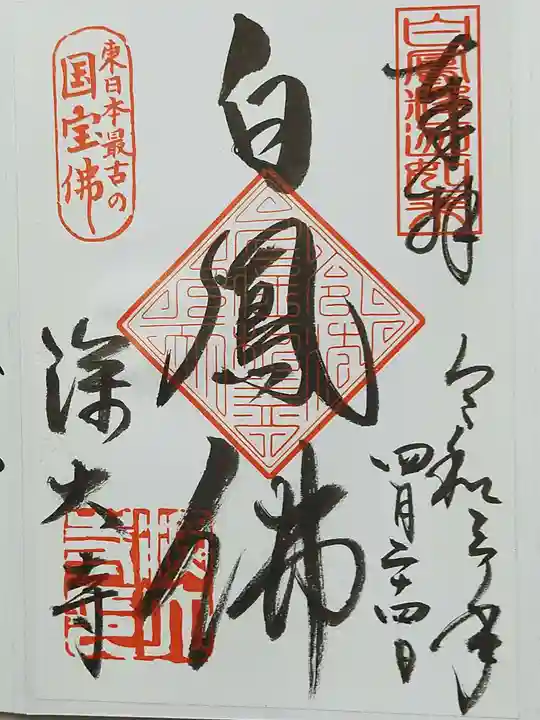 奉拝
令和三年
四月二十四日
白鳳佛
東日本最古の
国宝佛
深大寺